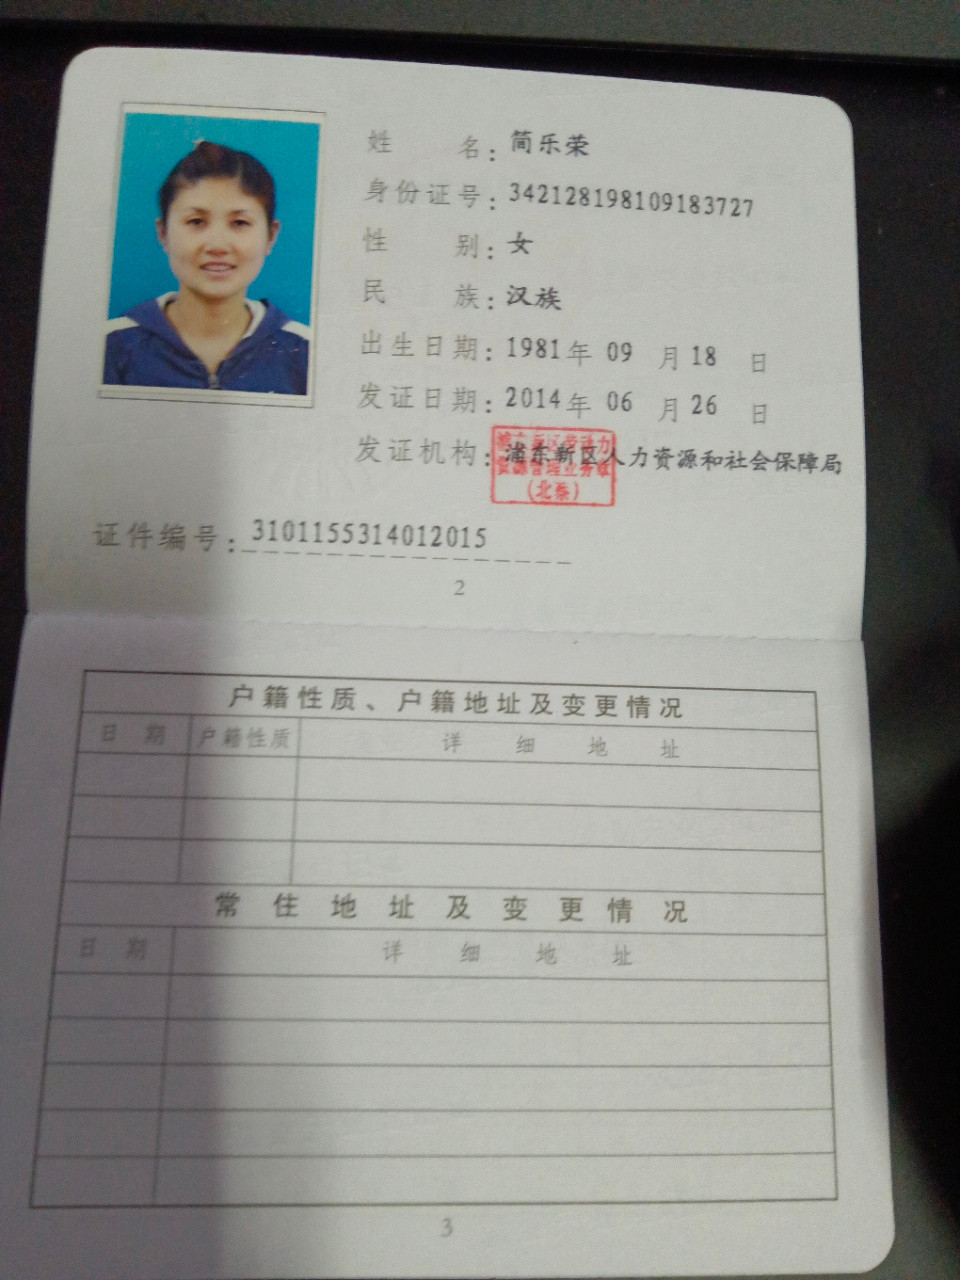 姓名：简乐荣
身份证号：342128198109183727
性别：女
民族：汉族
出生日期：1981年 09 月 18 日
发证日期：2014年 06 月 26 日
发证机构：浦东新区人力资源和社会保障局
浦东新区劳动力
资源管理业务章
（北蔡）
证件编号：3101155314012015
2
户籍性质、户籍地址及变更情况
日期 户籍性质 详细地址
常住地址及变更情况
日期 详细地址
3